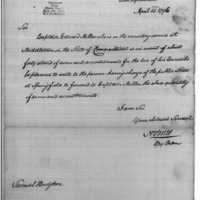 April 12. 1796
Sir
Captain Edward Miller who is on the recruiting service at
Middletown in the State of Connecticut is in want of about
forty stand of arms and accoutrements for the use of his Recruits
be pleased to write to the person having charge of the public Stores
at Springfield to forward to Captain Miller the above quantity
of arms and accoutrements.
I am Sir
Your obedient Servant
Samuel Hodgdon